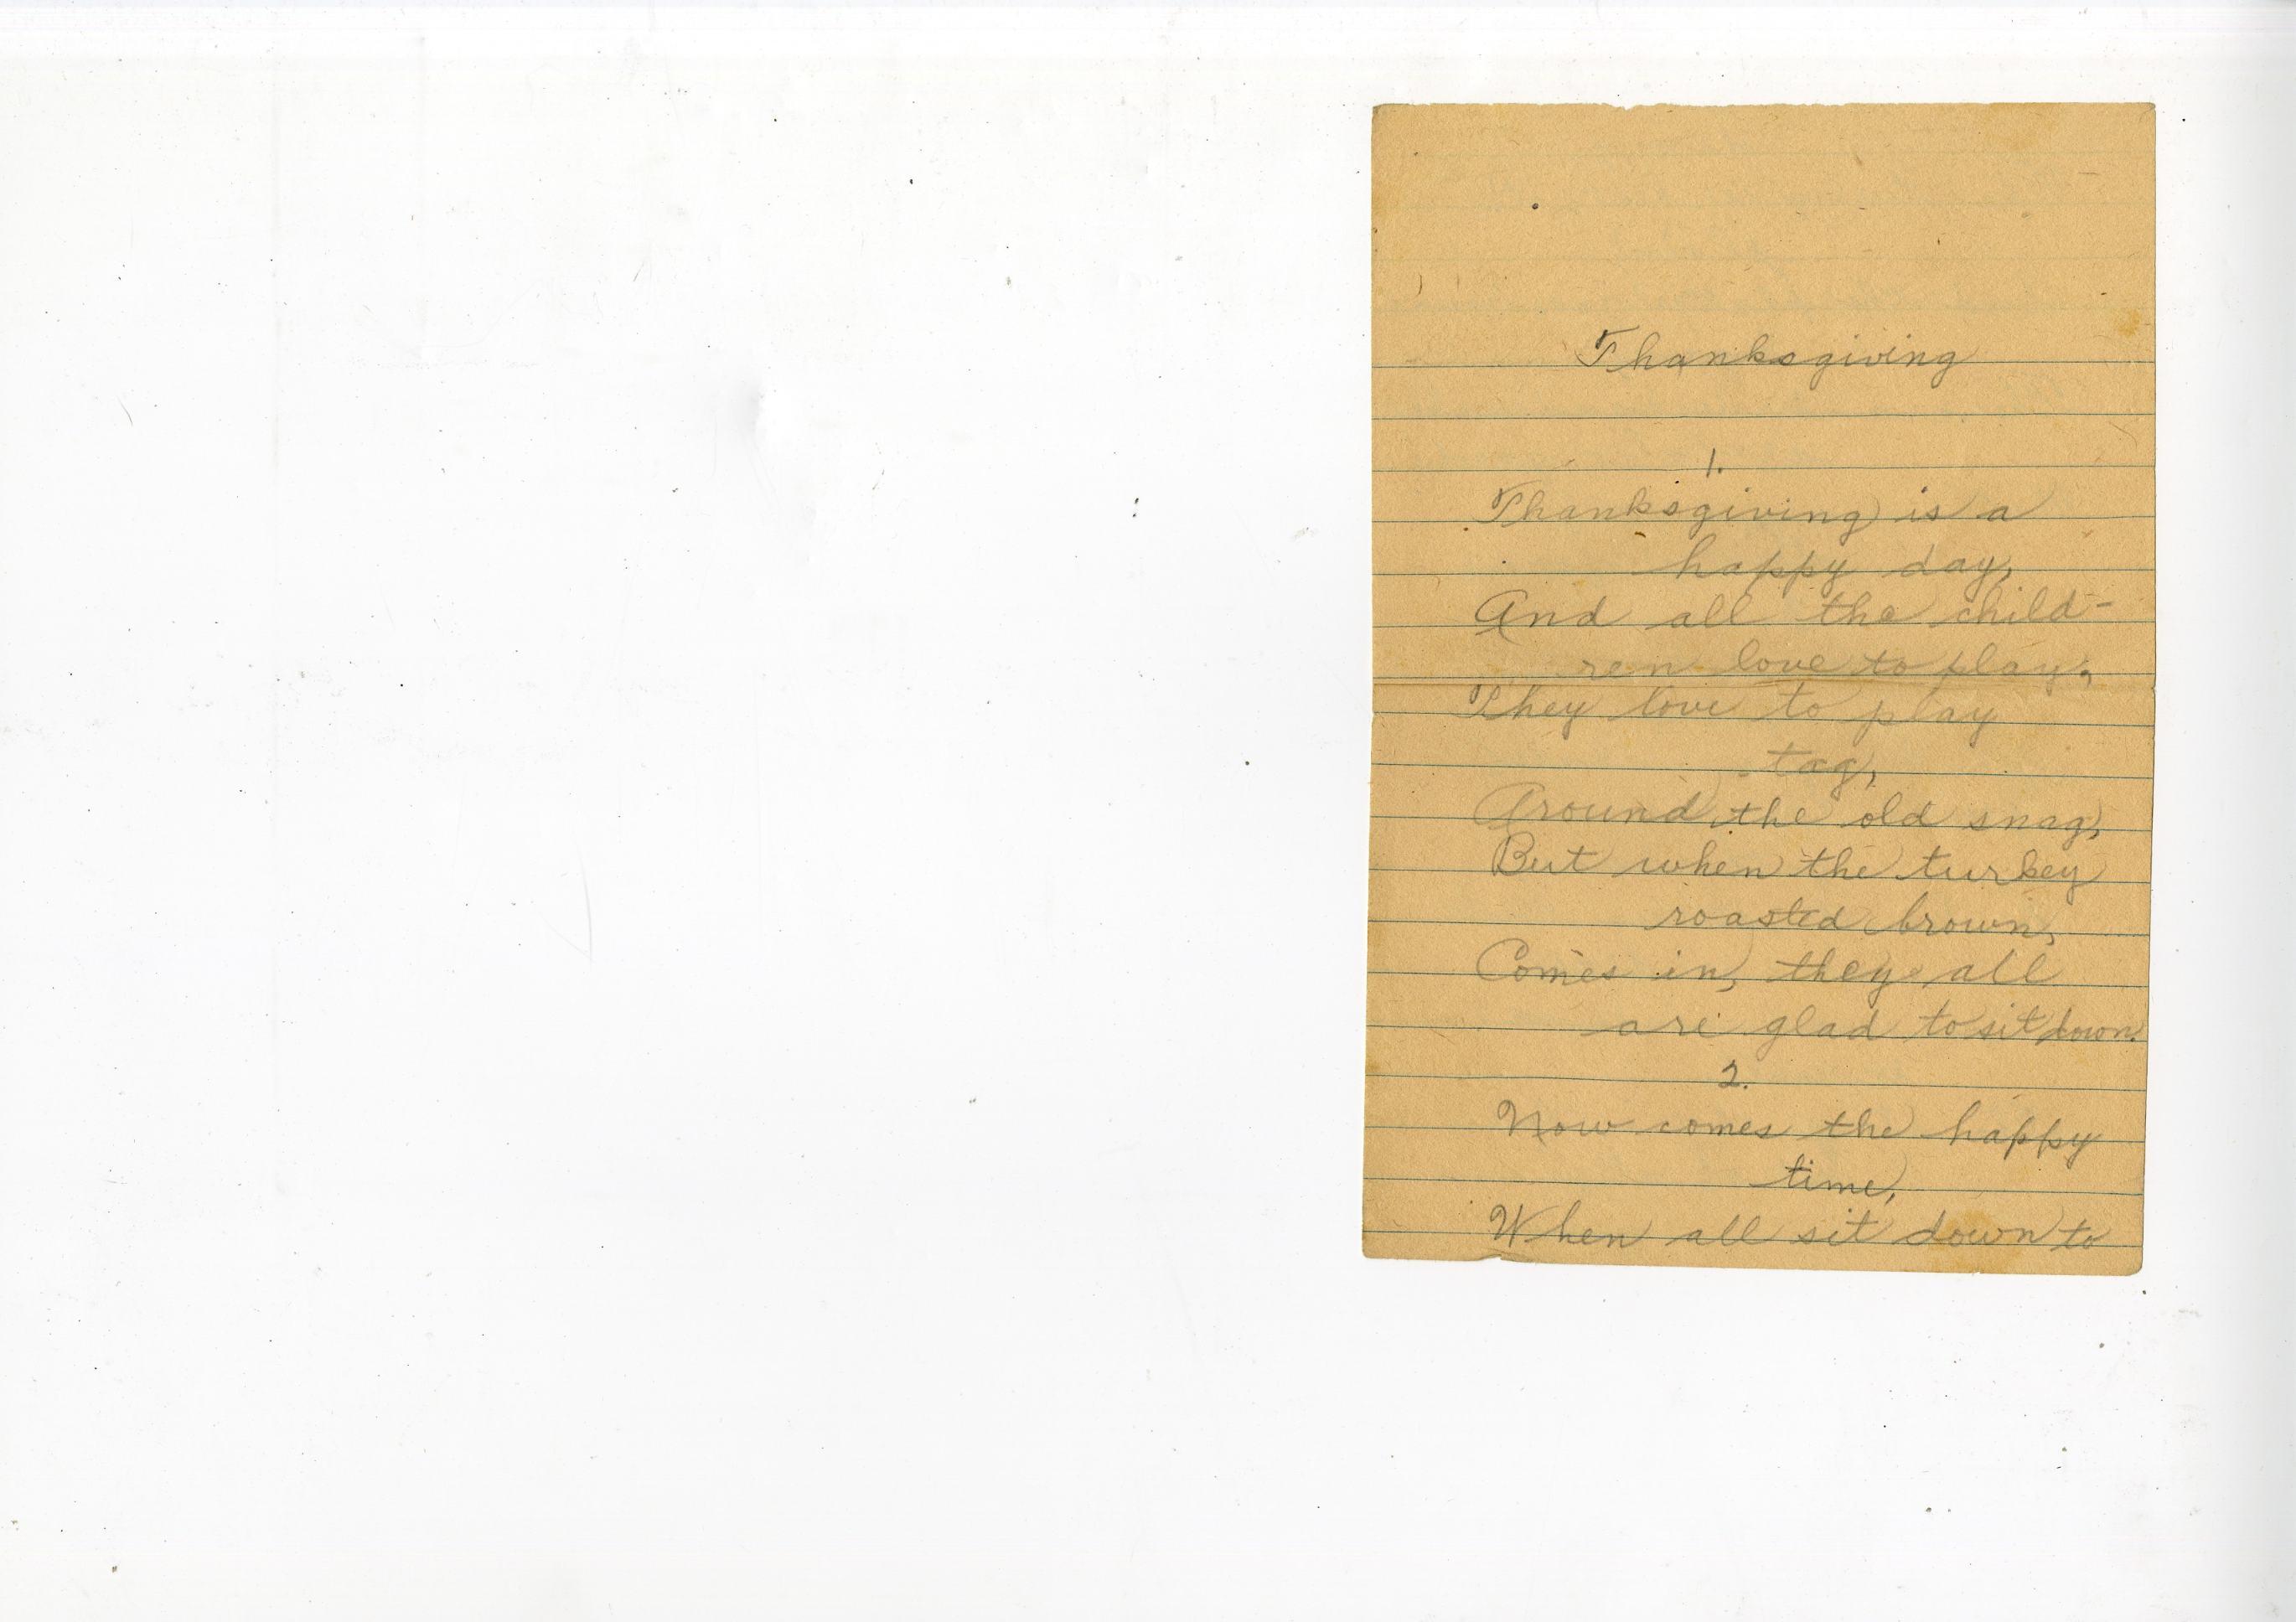 Thanksgiving
1.
Thanksgiving is a
happy day,
And all the child-
ren love to play,
They love to play
tag,
Around the old snag,
But when the turkey
roasted brown,
Comes in, they all
are glad to sit down.
2.
Now comes the happy
time,
When all sit down to